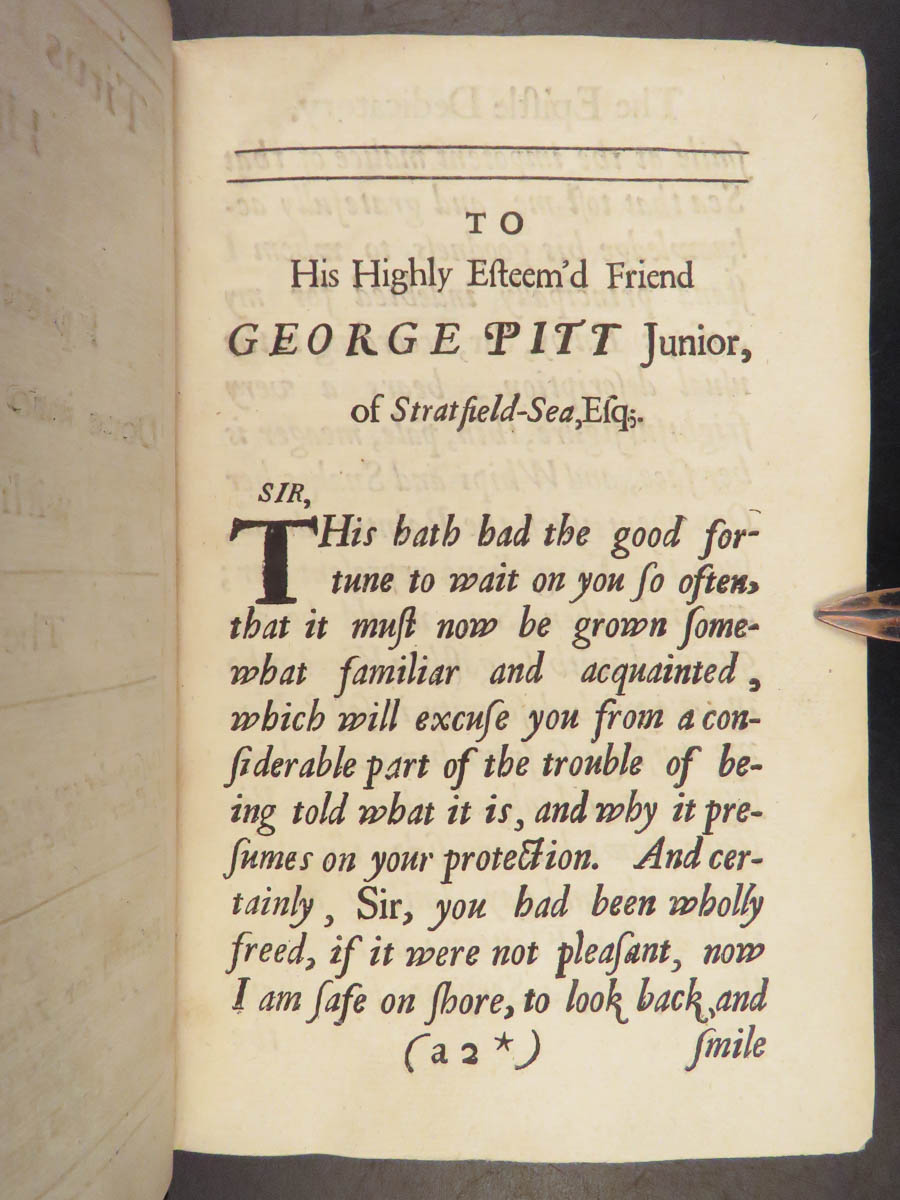 TO
His Highly Eſteem'd Friend
GEORGE PITT Junior,
of Stratfield-Sea, Eſq;.
SIR,
THis hath had the good for-
tune to wait on you ſo often,
that it muſt now be grown ſome-
what familiar and acquainted,
which will excuſe you from a con-
ſiderable part of the trouble of be-
ing told what it is, and why it pre-
ſumes on your protection. And cer-
tainly, Sir, you had been wholly
freed, if it were not pleaſant, now
I am ſafe on ſhore, to look back, and
(a 2 *) ſmile